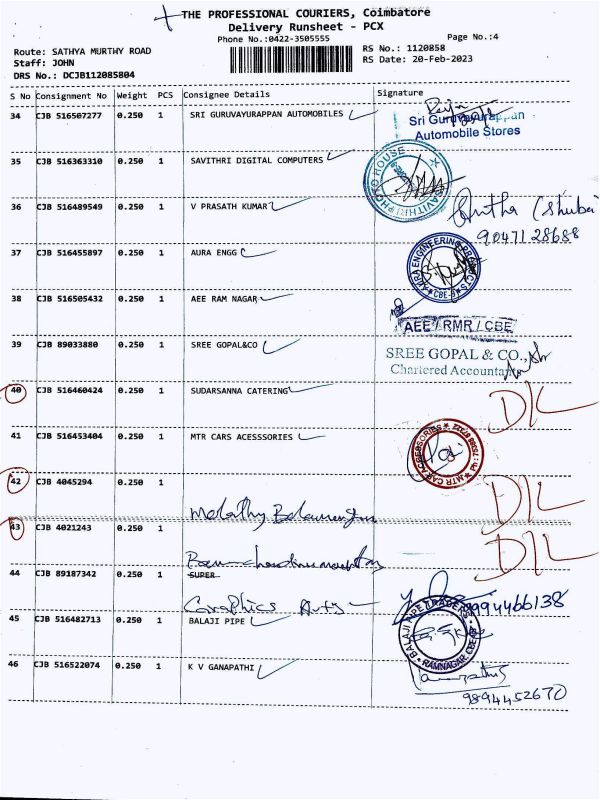 THE PROFESSIONAL COURIERS, Coimbatore
Delivery Runsheet - PCX
Phone No.:0422-3505555
Page No.:4
Route: SATHYA MURTHY ROAD
Staff: JOHN
DRS No.: DCJB112085804
RS No.: 1120858
RS Date: 20-Feb-2023
S No Consignment No Weight PCS Consignee Details Signature
34 CJB 516507277 0.250 1 SRI GURUVAYURAPPAN AUTOMOBILES
Sri Guruvayurappan
Automobile Stores
35 CJB 516363310 0.250 1 SAVITHRI DIGITAL COMPUTERS
SAVITHRI PHOTO HOUSE
36 CJB 516489549 0.250 1 V PRASATH KUMAR
(Shuba)
9047128688
37 CJB 516455897 0.250 1 AURA ENGG
AURA ENGINEERING PRODUCTS
38 CJB 516505432 0.250 1 AEE RAM NAGAR
AEE / RMR / CBE
39 CJB 89033880 0.250 1 SREE GOPAL&CO
SREE GOPAL & CO.,
Chartered Accountants
40 CJB 516460424 0.250 1 SUDARSANNA CATERING
D/L
41 CJB 516453404 0.250 1 MTR CARS ACESSSORIES
MTR CAR ACCESSORIES
42 CJB 4045294 0.250 1
Malathy Balamurugan
D/L
43 CJB 4021243 0.250 1
D/L
44 CJB 89187342 0.250 1 SUPER
Graphics Arts
9994466138
45 CJB 516482713 0.250 1 BALAJI PIPE
BALAJI PIPE TRADERS
RAMNAGAR CBE-9
46 CJB 516522074 0.250 1 K V GANAPATHI
9894452670